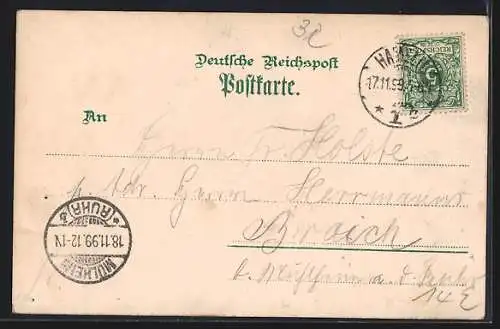 32
Deutsche Reichspost
Postkarte.
An
Herrn Fr. Holste
p. Adr. Herrn Herrmanns
Broich
b. Mülheim a. d. Ruhr
14 E
17.11.99.
* 1
MÜLHEIM
18.11.99.12-1N
* (RUHR) b
5